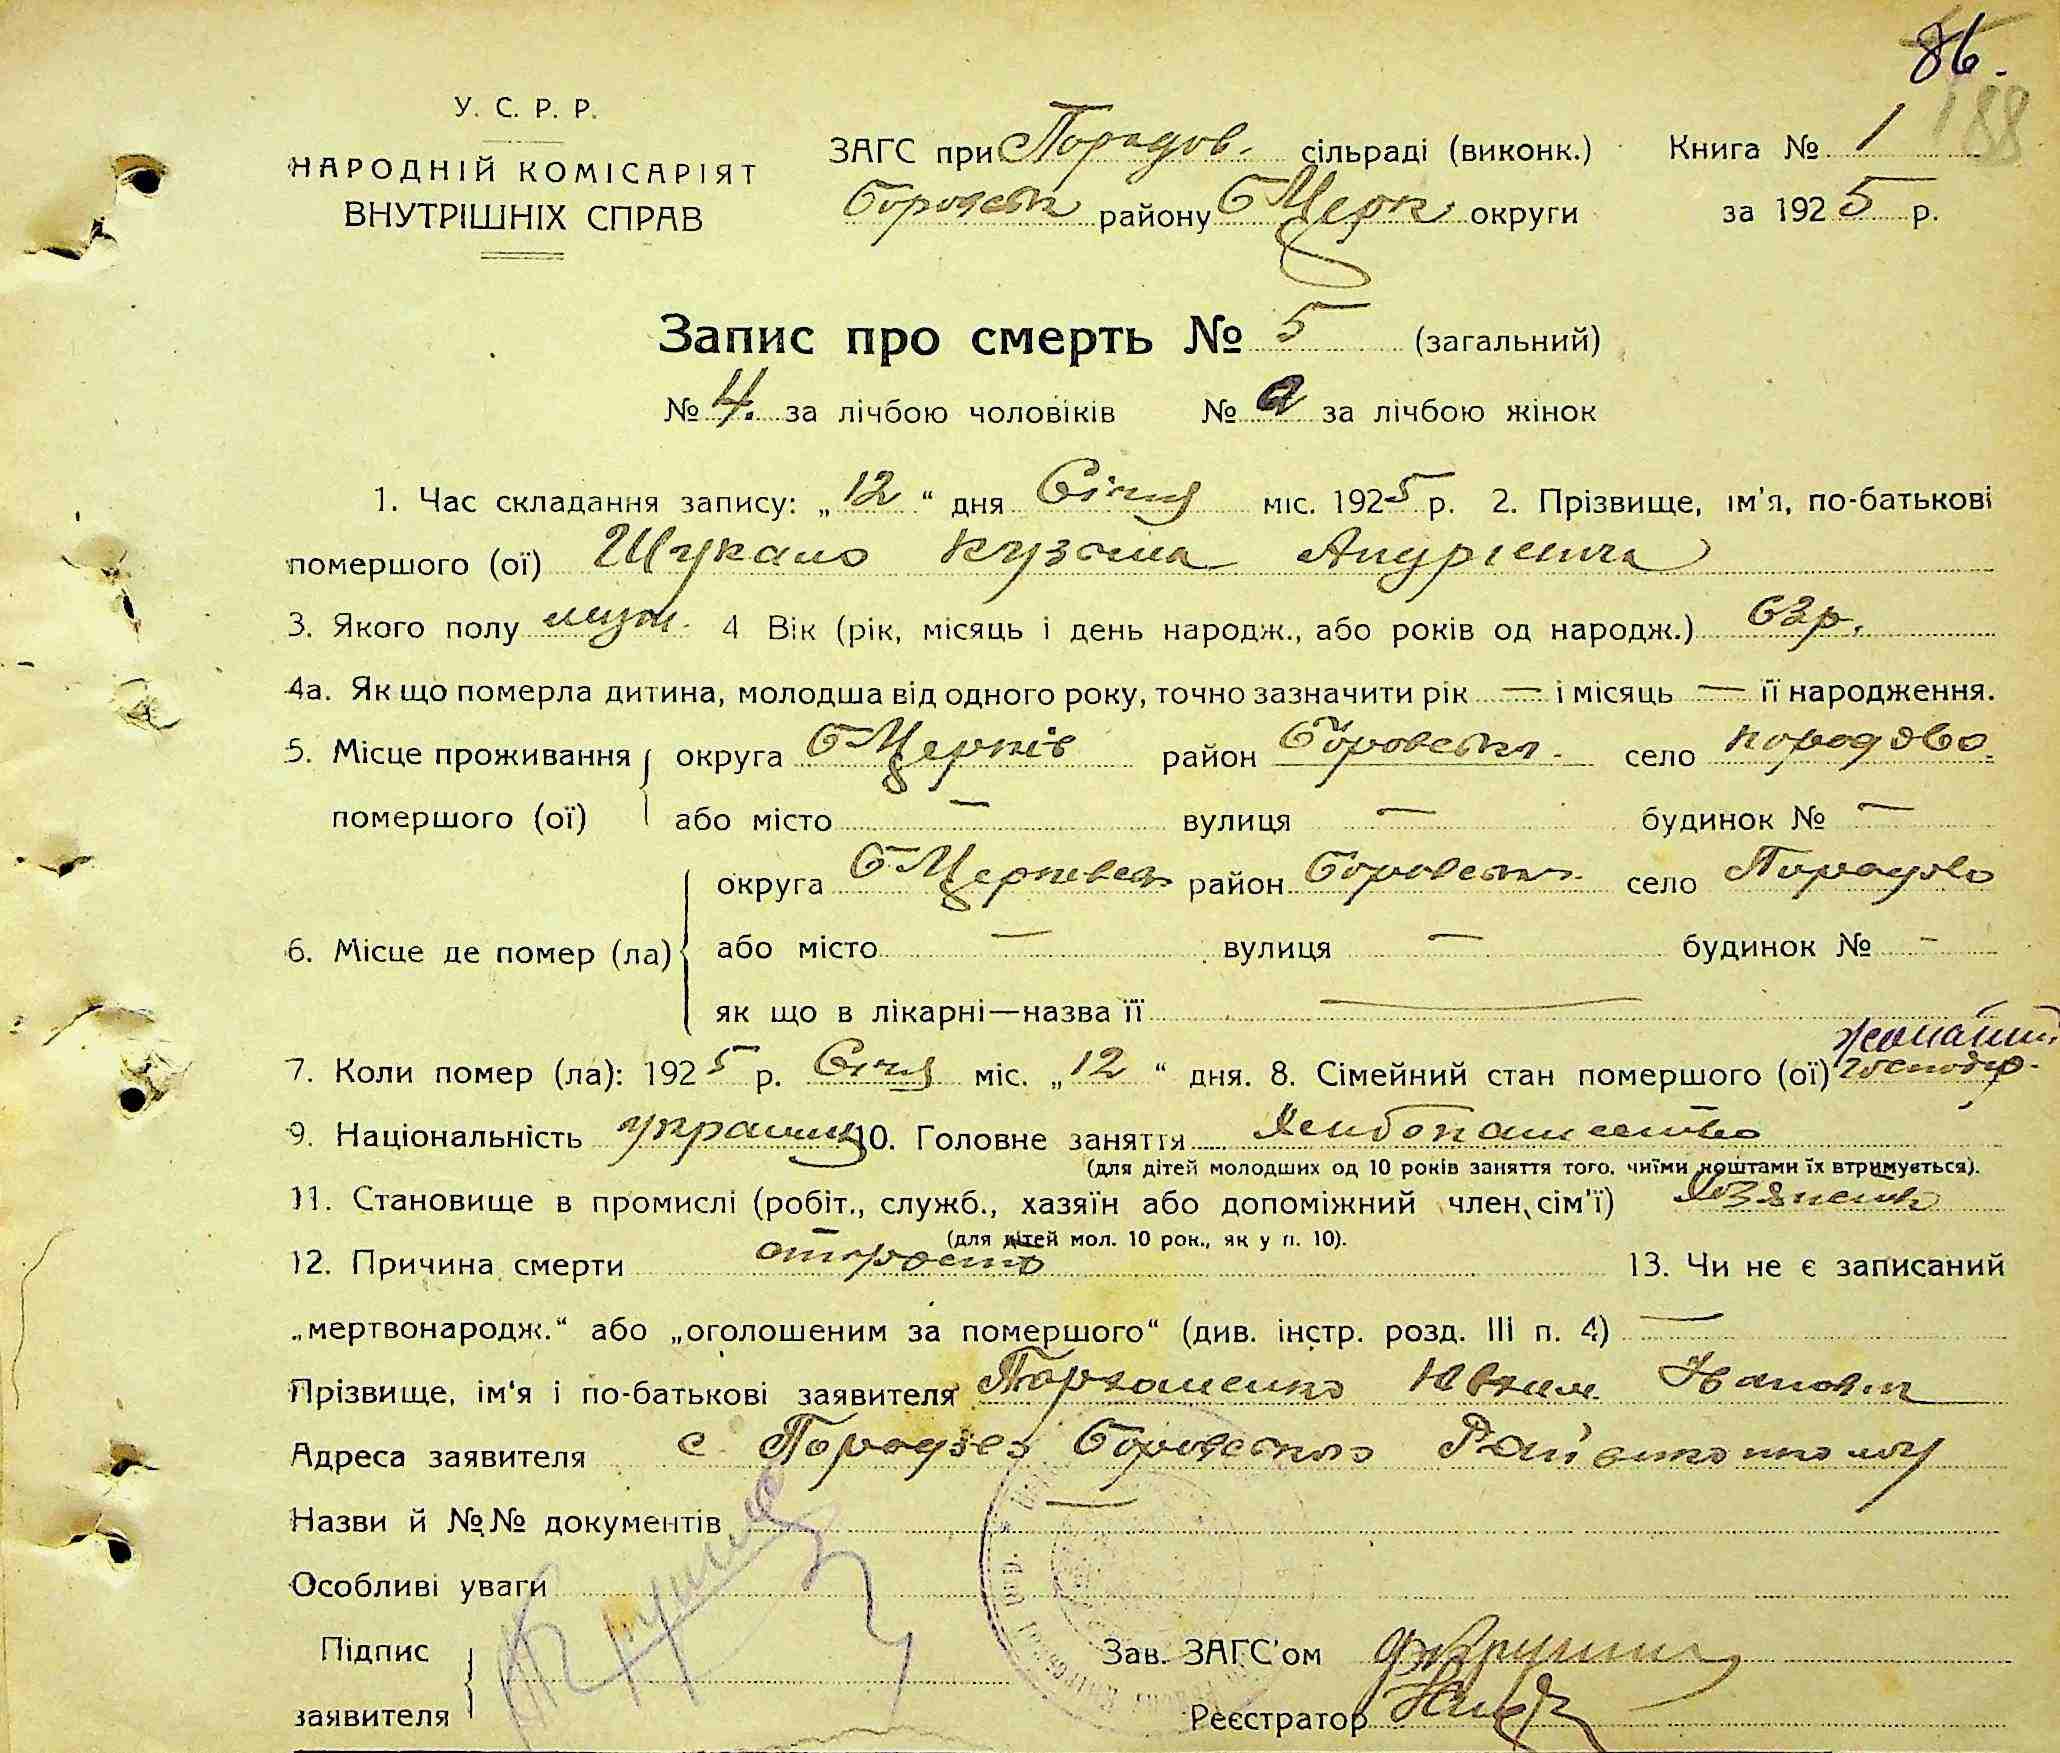 86.
188
У. С. Р. Р.
НАРОДНІЙ КОМІСАРІЯТ
ВНУТРІШНІХ СПРАВ
ЗАГС при Порадов. сільраді (виконк.) Книга № 1
району Б Церк округи за 1925 р.
Запис про смерть № 5 (загальний)
№ 4. за лічбою чоловіків № а за лічбою жінок
1. Час складання запису: „12“ дня Січня міс. 1925 р. 2. Прізвище, ім'я, по-батькові
помершого (ої) Шукало Кузьма Андрієвич
3. Якого полу муж. 4 Вік (рік, місяць і день народж., або років од народж.) 63р.
4а. Як що померла дитина, молодша від одного року, точно зазначити рік — і місяць — її народження.
5. Місце проживання округа Б Церків район село Порадово
помершого (ої) або місто — вулиця — будинок № —
округа Б Церковск район село Порадово
6. Місце де помер (ла) або місто — вулиця — будинок № —
як що в лікарні—назва її —
7. Коли помер (ла): 1925 р. Січня міс. „12“ дня. 8. Сімейний стан помершого (ої) жонатий господар.
9. Національність украинец 10. Головне заняття хлибопашество
(для дітей молодших од 10 років заняття того, чиїми коштами їх втримується).
11. Становище в промислі (робіт., служб., хазяїн або допоміжний член сім'ї)
(для дітей мол. 10 рок., як у п. 10).
12. Причина смерти старость 13. Чи не є записаний
„мертвонародж.“ або „оголошеним за помершого“ (див. інстр. розд. III п. 4) —
Прізвище, ім'я і по-батькові заявителя Пархоменко Юхим Іванович
Адреса заявителя с Порадово
Назви й №№ документів —
Особливі уваги
Підпис
заявителя
Зав. ЗАГС'ом
Реєстратор